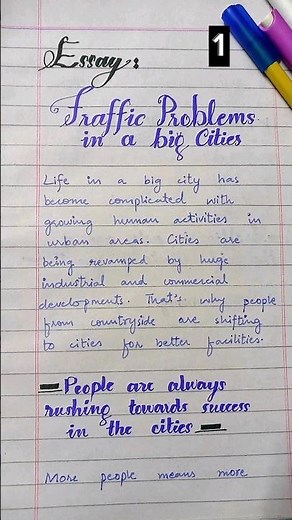 1
Essay:
Traffic Problems
in a big Cities
Life in a big city has
become complicated with
growing human activities in
urban areas. Cities are
being revamped by huge
industrial and commercial
developments. That's why people
from countryside are shifting
to cities for better facilities.
People are always
rushing towards success
in the cities
More people means more